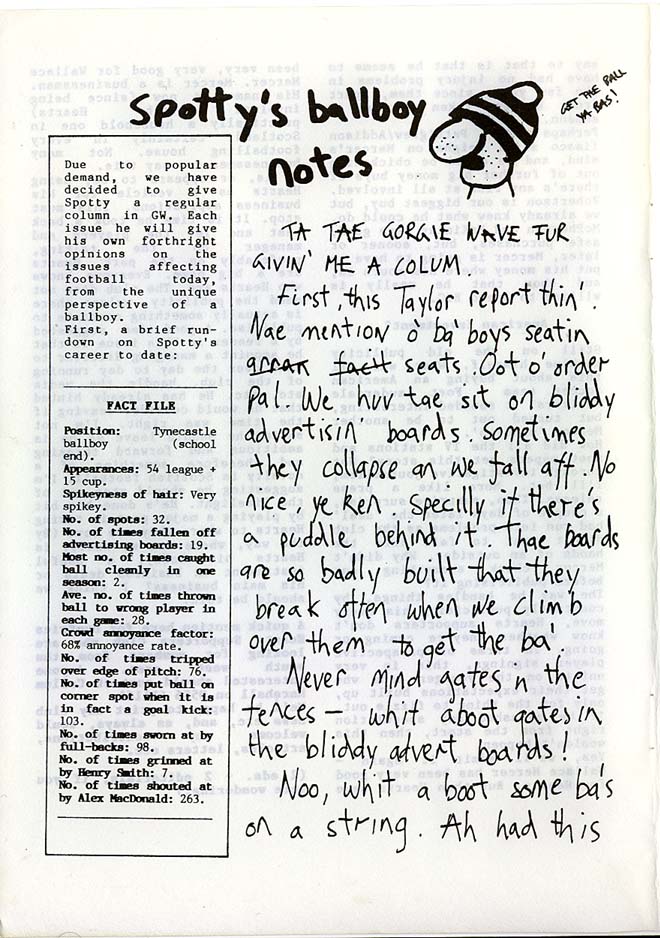 spotty's ballboy
notes
GET THE BALL
YA BAS!
Due to popular
demand, we have
decided to give
Spotty a regular
column in GW. Each
issue he will give
his own forthright
opinions on the
issues affecting
football today,
from the unique
perspective of a
ballboy.
First, a brief run-
down on Spotty's
career to date:
FACT FILE
Position: Tynecastle
ballboy (school
end).
Appearances: 54 league +
15 cup.
Spikeyness of hair: Very
spikey.
No. of spots: 32.
No. of times fallen off
advertising boards: 19.
Most no. of times caught
ball cleanly in one
season: 2.
Ave. no. of times thrown
ball to wrong player in
each game: 28.
Crowd annoyance factor:
68% annoyance rate.
No. of times tripped
over edge of pitch: 76.
No. of times put ball on
corner spot when it is
in fact a goal kick:
103.
No. of times sworn at by
full-backs: 98.
No. of times grinned at
by Henry Smith: 7.
No. of times shouted at
by Alex MacDonald: 263.
TA TAE GORGIE WAVE FUR
GIVIN' ME A COLUM.
First, this Taylor report thin'.
Nae mention o' ba' boys seatin
seats. Oot o' order
pal. We huv tae sit on bliddy
advertisin' boards. Sometimes
they collapse an we fall aff. No
nice, ye ken. Specilly if there's
a puddle behind it. Thae boards
are so badly built that they
break often when we climb
over them to get the ba'.
Never mind gates in the
fences - whit aboot gates in
the bliddy advert boards!
Noo, whit a boot some ba's
on a string. Ah had this